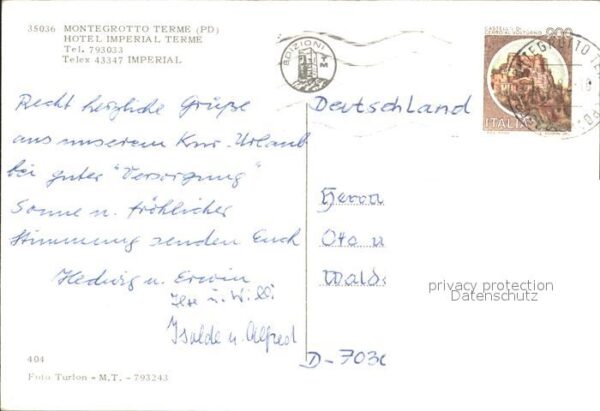 35036 MONTEGROTTO TERME (PD)
HOTEL IMPERIAL TERME
Tel. 793033
Telex 43347 IMPERIAL
EDIZIONI TM
CASTELLO DI
CERRO AL VOLTURNO
ITALIA
Recht herzliche Grüße
aus unserem Kur-Urlaub
bei guter "Versorgung"
Sonne u. fröhlicher
Stimmung senden Euch
Hedwig u. Erwin
Ilse u. Willi
Isolde u. Alfred
Deutschland
Herrn
Otto u
Wald
D-703
privacy protection
Datenschutz
404
Foto Turlon - M.T. - 793243